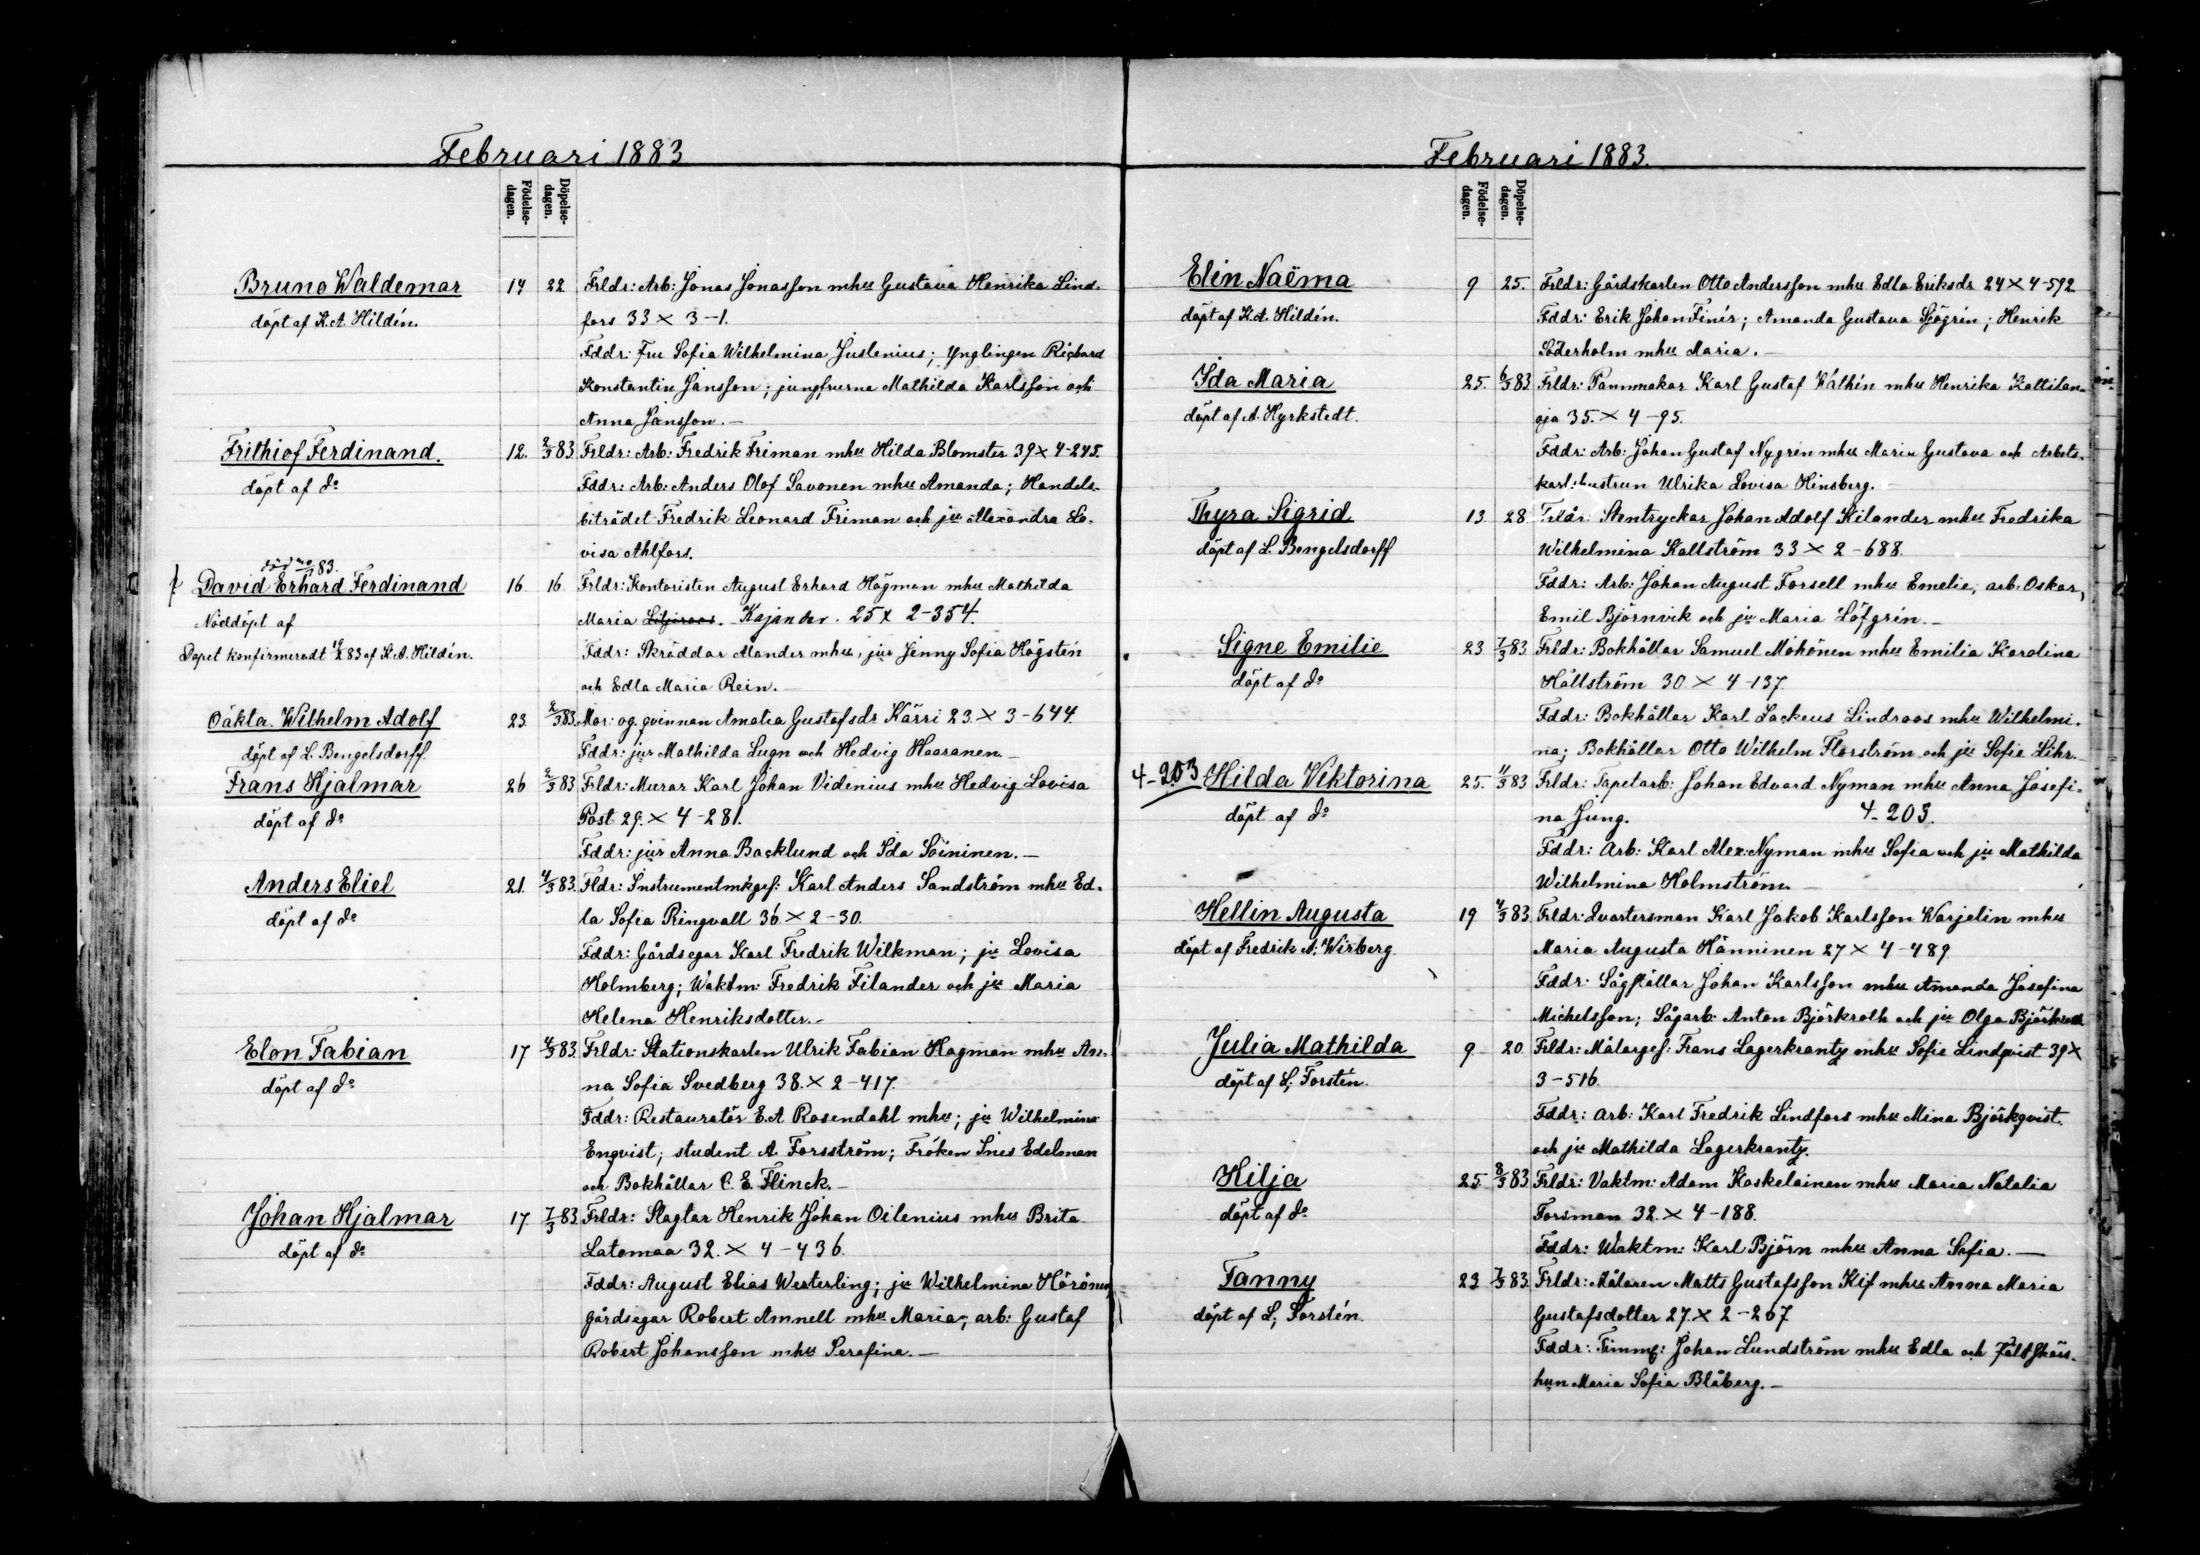 Februari 1883
Födelse-
dagen.
Döpelse-
dagen.
Bruno Waldemar
döpt af K. A. Hildén.
14 22 Frldr: Arb: Jonas Jonasson mhu Gustava Henrika Lind-
fors 33 × 3-1.
Fddr: Fru Sofia Wilhelmina Juslenius; Ynglingen Richard
Konstantin Jansson; jungfrurna Mathilda Karlsson och
Anna Jansson. —
Frithiof Ferdinand.
döpt af do
12. 2/3 83. Frldr: Arb: Fredrik Friman mhu Hilda Blomster 39 × 4-245.
Fddr: Arb: Anders Olof Savonen mhu Amanda; Handels-
biträdet Fredrik Leonard Friman och ju Alexandra Lo-
visa Ahlfors.
David Erhard Ferdinand
Nöddöpt af
Dopet konfirmeradt 19/2 83 af K. A. Hildén.
16 16 Frldr: Kontoristen August Erhard Hägman mhu Mathilda
Maria Liljeroos. Kajander. 25 × 2-354.
Fddr: Skräddar Mander mhu, jur Jenny Sofia Högstén
och Edla Maria Rein. —
Oäkta. Wilhelm Adolf
döpt af L. Bengelsdorff.
23. 2/3 83. Mor: og. qvinnan Amalia Gustafsdr Kärri 23. × 3-644.
Fddr: jur Mathilda Lugn och Hedvig Haaranen. —
Frans Hjalmar
döpt af do
26 2/3 83 Frldr: Murar Karl Johan Videnius mhu Hedvig Lovisa
Post 29. × 4-281.
Fddr: jur Anna Backlund och Ida Soininen. —
Anders Eliel
döpt af do
21. 4/3 83. Fldr: Instrumentmkgef: Karl Anders Sandström mhu Ed-
la Sofia Ringvall 36 × 2-30.
Fddr: Gårdsegar Karl Fredrik Wilkman; ju Lovisa
Holmberg; Waktm: Fredrik Filander och ju Maria
Helena Henriksdotter. —
Elon Fabian
döpt af do
17 4/3 83. Frldr: Stationskarlen Ulrik Fabian Hagman mhu An-
na Sofia Svedberg 38. × 2-417.
Fddr: Restauratör E. A Rosendahl mhu; ju Wilhelmina
Enqvist; student A. Forsström; Fröken Ines Edelman
och Bokhållar C. E. Flinck. —
Johan Hjalmar
döpt af do
17 7/3 83. Frldr: Slagtar Henrik Johan Oilenius mhu Brita
Latomaa 32. × 4-436.
Fddr: August Elias Westerling; ju Wilhelmina
gårdsegar Robert Amnell mhu Maria; arb: Gustaf
Robert Johansson mhu Serafina. —
Februari 1883.
Födelse-
dagen.
Döpelse-
dagen.
Elin Naëma
döpt af K. A. Hildén.
9 25. Frldr: Gårdskarlen Otto Andersson mhu Edla Eriksdr 24 × 4-592
Fddr: Erik Johan Finér; Amanda Gustava Sjögrén; Henrik
Söderholm mhu Maria. —
Ida Maria
döpt af A. Hyrkstedt.
25. 6/3 83. Frldr: Pannmakar Karl Gustaf Wálhén mhu Henrika Kattilan-
oja 35. × 4-95.
Fddr: Arb: Johan Gustaf Nygrén mhu Maria Gustava och Arbets-
karl:hustrun Ulrika Lovisa Hinsberg. —
Thyra Sigrid
döpt af L. Bengelsdorff
13. 28 Frldr: Stentryckar Johan Adolf Kilander mhu Fredrika
Wilhelmina Kallström 33 × 2-688.
Fddr: Arb: Johan August Forsell mhu Emelie; arb: Oskar
Emil Björnvik och ju Maria Löfgrén. —
Signe Emilie
döpt af do
23 7/3 83 Frldr: Bokhållar Samuel Möhönen mhu Emilia Karolina
Hällström 30 × 4-137.
Fddr: Bokhållar Karl Lackeus Lindroos mhu Wilhelmi-
na; Bokhållar Otto Wilhelm Florström och ju Sofie Lihr. —
4-203 Hilda Viktorina
döpt af do
25. 11/3 83 Frldr: Tapetarb: Johan Edvard Nyman mhu Anna Josefi-
na Jung. 4-203.
Fddr: Arb: Karl Alex: Nyman mhu Sofia och ju Mathilda
Wilhelmina Holmström. —
Hellin Augusta
döpt af Fredrik A. Wirberg.
19 4/3 83. Frldr: Qvartersman Karl Jakob Karlsson Warjelin mhu
Maria Augusta Hänninen 27 × 4-489.
Fddr: Sågställar Johan Karlsson mhu Amanda Josefina
Michelsson; Sågarb: Anton Björkroth och ju Olga
Julia Mathilda
döpt af L. Forstén.
9 20. Frldr: Målargef: Frans Lagerkrantz mhu Sofie Lindqvist 39 ×
3-516.
Fddr: arb: Karl Fredrik Lindfors mhu Mina Björkqvist
och ju Mathilda Lagerkrantz.
Hilja
döpt af do
25 8/3 83. Frldr: Vaktm: Adam Koskelainen mhu Maria Natalia
Forsman 32. × 4-188.
Fddr: Waktm: Karl Björn mhu Anna Sofia. —
Fanny
döpt af L. Forstén.
23 7/3 83. Frldr: Målaren Matts Gustafsson Kif mhu Anna Maria
Gustafsdotter 27. × 2-267
Fddr: Timmf: Johan Lundström mhu Edla och Fältskärs-
hun Maria Sofia Blåberg. —